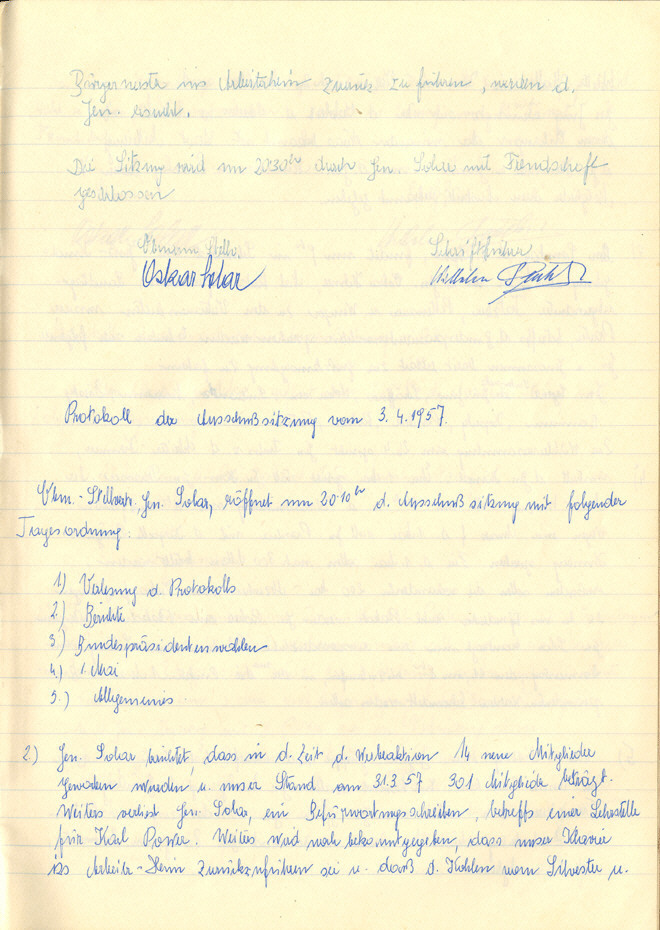 Bürgermeister ins Arbeiterheim zurück zu führen, werden d.
Gen. ersucht.
Die Sitzung wird um 20:30 Uhr durch Gen. Solar mit Freundschaft
geschlossen
Obmann Stellv.
Oskar Solar Wilhelm
Protokoll der Ausschußsitzung vom 3.4.1957.
Obm.-Stellvertr., Gen. Solar, eröffnet um 20:10 Uhr d. Ausschußsitzung mit folgender
Tagesordnung:
1.) Verlesung d. Protokolls
2.) Berichte
3.) Bundespräsidentenwahlen
4.) 1. Mai
5.) Allgemeines
2.) Gen. Solar berichtet, dass in d. Zeit d. Werbeaktion 14 neue Mitglieder
geworben wurden u. unser Stand am 31.3.57 301 Mitglieder beträgt.
Weiters verliest Gen. Solar, ein Befürwortungsschreiben, betreffs einer Lehrstelle
für Karl. Weiters wird noch bekanntgegeben, dass unser Klavier
ins Arbeiter-Heim zurückzuführen sei u. daß d. Kohlen vom Silvester u.